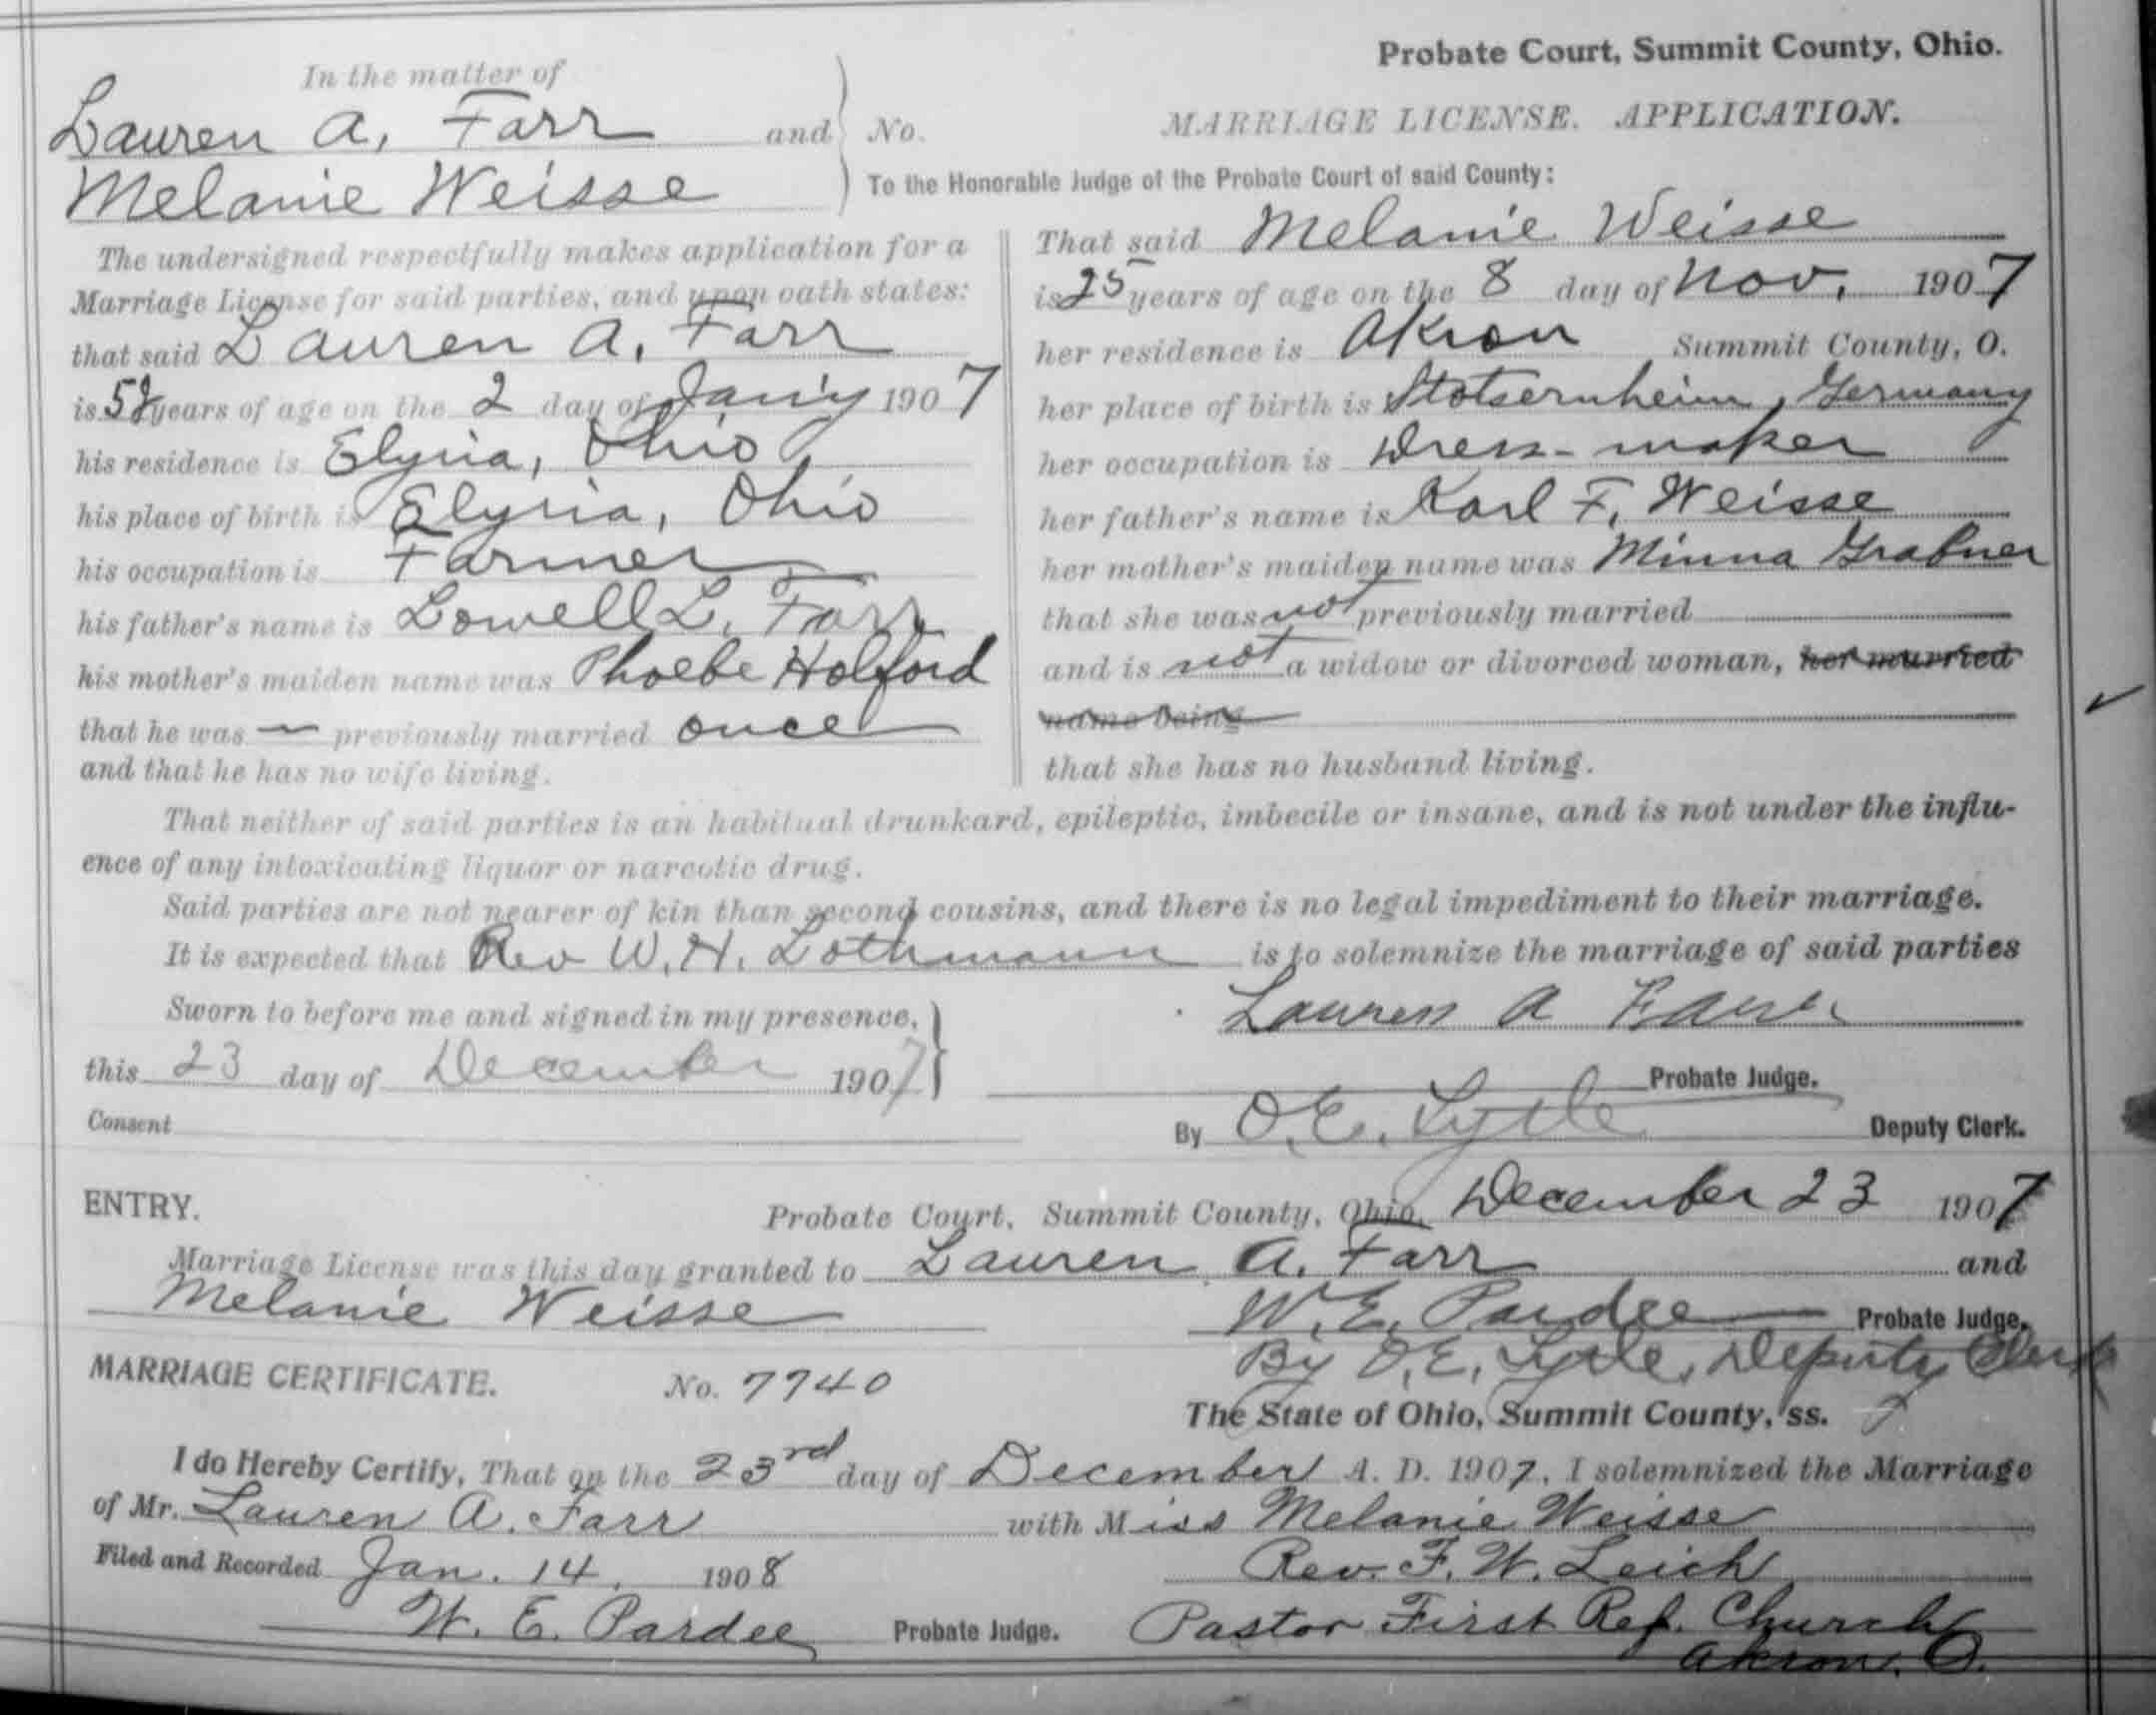 Probate Court, Summit County, Ohio.
In the matter of
Lauren A. Farr and
Melanie Weisse
No. MARRIAGE LICENSE. APPLICATION.
To the Honorable Judge of the Probate Court of said County:
The undersigned respectfully makes application for a
Marriage License for said parties, and upon oath states:
that said Lauren A. Farr
is years of age on the 2 day of Jan'y 1907
his residence is Elyria, Ohio
his place of birth is Elyria, Ohio
his occupation is Farmer
his father's name is Lowell L. Farr
his mother's maiden name was Phoebe Holford
that he was — previously married once
and that he has no wife living.
That said Melanie Weisse
is 25 years of age on the 8 day of Nov. 1907
her residence is Akron Summit County, O.
her place of birth is Stotsernheim, Germany
her occupation is Dress-maker
her father's name is Karl F. Weisse
her mother's maiden name was Minna
that she was not previously married
and is not a widow or divorced woman, her married
name being
that she has no husband living.
That neither of said parties is an habitual drunkard, epileptic, imbecile or insane, and is not under the influ-
ence of any intoxicating liquor or narcotic drug.
Said parties are not nearer of kin than second cousins, and there is no legal impediment to their marriage.
It is expected that Rev W. H. Lothmann is to solemnize the marriage of said parties
Sworn to before me and signed in my presence,
this 23 day of December 1907
Lauren A Farr
Probate Judge.
Consent
By O. E. Lytle Deputy Clerk.
ENTRY.
Probate Court, Summit County, Ohio, December 23 1907
Marriage License was this day granted to Lauren A. Farr and
Melanie Weisse
W. E. Pardee Probate Judge.
By O. E. Lytle, Deputy Clerk
MARRIAGE CERTIFICATE. No. 7740
The State of Ohio, Summit County, ss.
I do Hereby Certify, That on the 23rd day of December A. D. 1907, I solemnized the Marriage
of Mr. Lauren A. Farr with Miss Melanie Weisse
Filed and Recorded Jan. 14, 1908
Rev. F. W. Leich
W. E. Pardee Probate Judge.
Pastor First Ref. Church
Akron, O.